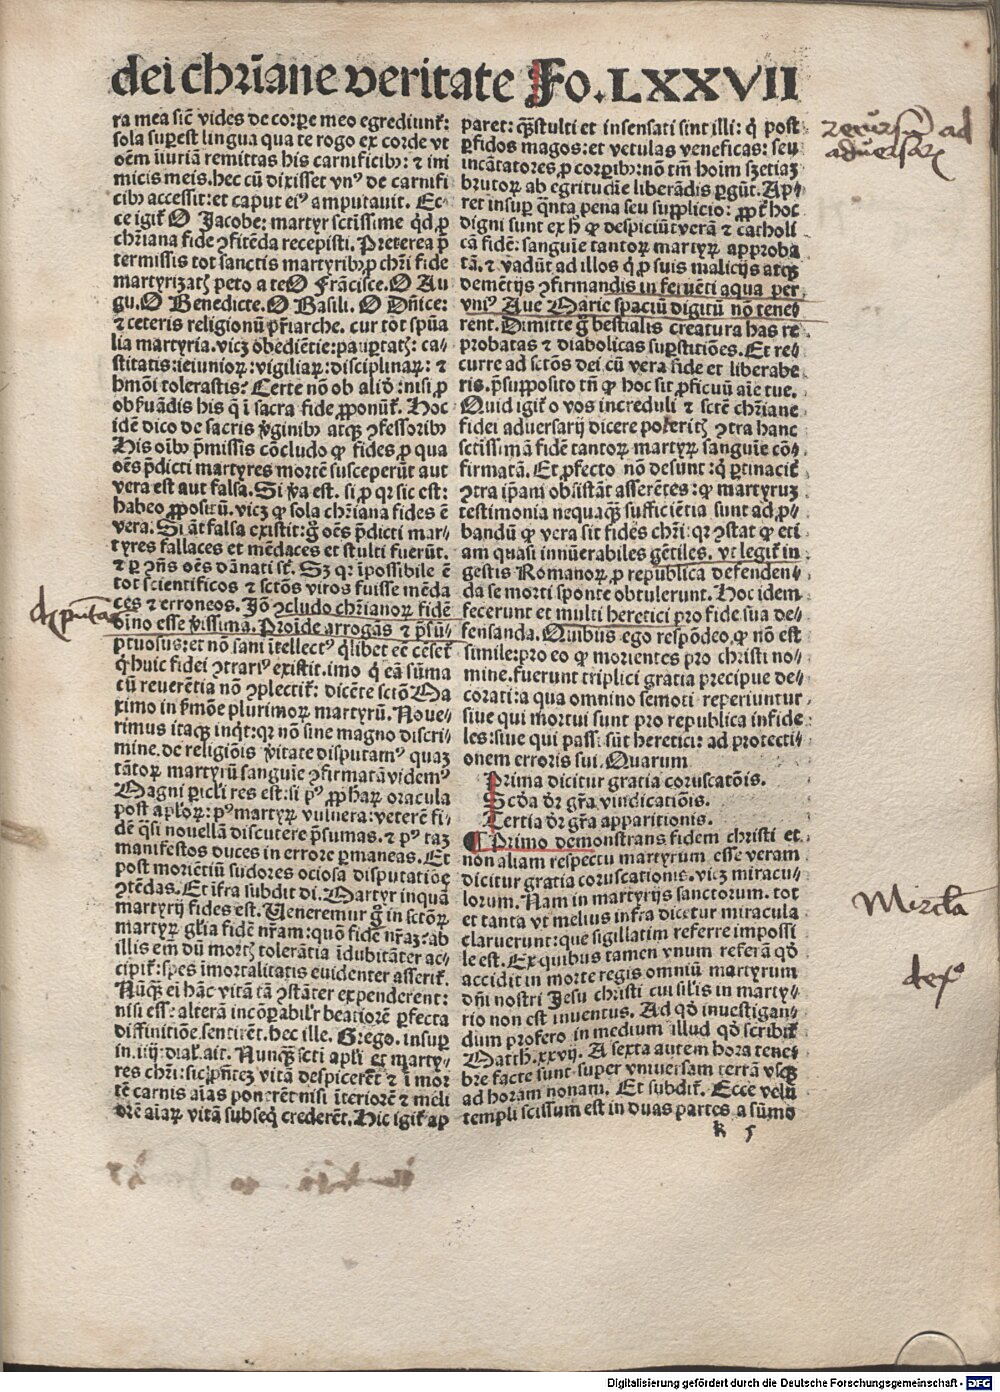 dei chr̄iane veritate Fo. LXXVII
ra mea sic̄ vides de corꝑe meo egrediunt᷑:
sola suꝑest lingua qua te rogo ex corde vt
oēm iniuriā remittas his carnificibꝰ: ⁊ ini
micis meis. hec cū dixisset vnꝰ de carnifi
cibꝰ accessit: et caput eiꝰ amputauit. Ec⸗
ce igit᷑ O Jacobe: martyr sctīssime qd̓ ꝓ
chr̄iana fide ꝯfitēda recepisti. Preterea p̄
termissis tot sanctis martyribꝰ ꝓ chr̄i fide
martyrizatꝭ peto a te O Frācisce. O Au
gu. O Benedicte. O Basili. O Dn̄ice:
⁊ ceteris religionū pr̄iarche. cur tot spūa
lia martyria. vicꝫ obediētie: pauꝑtatꝭ: ca⸗
stitatis: ieiunioꝝ: vigiliaꝝ: disciplinaꝝ: ⁊
hmōi tolerastis? Certe nō ob aliđ: nisi ꝓ
obẜuādis his q̄ ī sacra fide ꝓponūt᷑. Hoc
idē dico de sacris ꝟginibꝰ atqꝫ ꝯfessoribꝰ
His oībꝰ p̄missis cōcludo ꝙ fides ꝓ qua
oēs p̄dicti martyres mortē susceperūt aut
vera est aut falsa. Si ꝟa est. si ꝓ qꝛ sic est:
habeo ꝓpositū. vicꝫ ꝙ sola chr̄iana fides ē
vera. Si āt falsa existit: g̊ oēs p̄dicti mar⸗
tyres fallaces et mēdaces et stulti fuerūt.
⁊ ꝑ ꝯn̄s oēs dānati st̄. Sꝫ qꝛ īpossibile ē
tot scientificos ⁊ sctōs viros fuisse mēda
ces ⁊ erroneos. Jō ꝯcludo chr̄ianoꝝ fidē
oīno esse ꝟissimā. Proīde arrogās ⁊ p̄sū⸗
ptuosus: et nō sani ītellectꝰ q̄libet eē cēset᷑
q̇ huic fidei ꝯtrariꝰ existit. imo q̇ eā sūma
cū reuerētia nō ꝯplectit᷑: dicēte sctō Ma
ximo in ẜmōe plurimoꝝ martyrū. Noue⸗
rimus itaqꝫ inqt᷑: qꝛ nō sine magno discri⸗
mine. de religiōis ꝟitate disputamꝰ quaꝫ
tātoꝝ martyriū sanguīe ꝯfirmatā videmꝰ
Magni pericłi res est: si pꝰ ꝓphaꝝ oracula
post apłoꝝ: pꝰ martyꝝ vulnera: veterē fi⸗
dē q̄si nouellā discutere p̄sumas. ⁊ pꝰ taꝫ
manifestos duces in errore ꝑmaneas. Et
post moriētiū sudores ociosa disputatiōe
ꝯtēdas. Et īfra subdit di. Martyr inquā
martyrij fides est. Veneremur g̊ in sctōꝝ
martyꝝ glīa fidē nr̄am: quō fidē nr̄aꝫ: ab
illis em̄ dū mortꝭ tolerātia īdubitāter ac⸗
cipit᷑: spes īmortalitatis euidenter asserit᷑.
Nūqꝫ ei hāc vitā tā ꝯstāter expenderent:
nisi esse alterā incōꝑabilr̄ beatiorē ꝑfecta
diffinitiōe sentirēt. hec ille. Grego. insuꝑ
in. iiij. diał. ait. Nunqꝫ scti apłi et marty⸗
res chr̄i: sic p̄ntēꝫ vitā despicerēt ⁊ ī mor
tē carnis aīas ponerēt nisi īteriorē ⁊ meli
orē aīaꝝ vitā subseq̄ crederēt. Hic igit᷑ ap
paret: qꝫ stulti et insensati sint illi: q̇ post
ꝑfidos magos: et vetulas veneficas: seu
incātatores ꝓ corꝑibꝰ: nō tm̄ hoīm sꝫ etiaꝫ
brutoꝝ ab egritudīe liberādis ꝑgūt. Ap⸗
ret insuꝑ q̄nta pena seu supplicio: ꝓpt᷑ hoc
digni sunt ex h̊ ꝙ despiciūt verā ⁊ catholi
cā fidē: sanguīe tantoꝝ martyꝝ approba
tā. ⁊ vadūt ad illos q̇ ꝓ suis malicijs atqꝫ
demētijs ꝯfirmandis in feruēti aqua per
vniꝰ Aue Marie spaciū digitū nō tene⸗
rent. Dimitte g̊ bestialis creatura has re
probatas ⁊ diabolicas suꝑstitiōes. Et re⸗
curre ad sctōs dei cū vera fide et liberabe
ris. p̄supposito tn̄ ꝙ hoc sit ꝓficuū aīe tue.
Quid igit᷑ o vos increduli ⁊ scte chr̄iane
fidei aduersarij dicere poteritꝭ ꝯtra hanc
sctissimā fidē tantoꝝ martyꝝ sanguīe cō⸗
firmatā. Et ꝓfecto nō desunt: q̇ ꝑtinacit᷑
ꝯtra ip̄am obsistāt asserētes: ꝙ martyruꝫ
testimonia nequaqꝫ sufficiētia sunt ad ꝓ⸗
bandū ꝙ vera sit fides chr̄i: qꝛ ꝯstat ꝙ eti
am quasi innūerabiles gētiles. vt legit᷑ in
gestis Romanoꝝ ꝓ republica defenden⸗
da se morti sponte obtulerunt. Hoc idem
fecerunt et multi heretici pro fide sua de⸗
fensanda. Quibus ego respōdeo, ꝙ nō est
simile: pro eo ꝙ morientes pro christi no⸗
mine. fuerunt triplici gratia precipue de⸗
corati: a qua omnino semoti reperiuntur
siue qui mortui sunt pro republica infide
les: siue qui passi sūt heretici: ad protecti⸗
onem erroris sui. Quarum
Prima dicitur gratia coruscatōis.
Scd̄a dr̄ gr̄a vindicatiōis.
Tertia dr̄ gr̄a apparitionis.
¶ Primo demonstrans fidem christi et
non aliam respectu martyrum esse veram
dicitur gratia coruscationis. vicꝫ miracu⸗
lorum. Nam in martyrijs sanctorum. tot
et tanta vt melius infra dicetur miracula
claruerunt: que sigillatim referre impossi
le est. Ex quibus tamen vnum referā qđ
accidit in morte regis omniū martyrum
dn̄i nostri Jesu christi cui silis in marty⸗
rio non est inuentus. Ad qđ inuestigan⸗
dum profero in medium illud qđ scribit᷑
Matth. xxvij. A sexta autem hora tene⸗
bre facte sunt super vniuersam terrā vsqꝫ
ad horam nonam. Et subdit᷑. Ecce velū
templi scissum est in duas partes a sūmo
k 5
recursū ad
aduersarꝭ
Miracła
de xp̄o
Digitalisierung gefördert durch die Deutsche Forschungsgemeinschaft - DFG